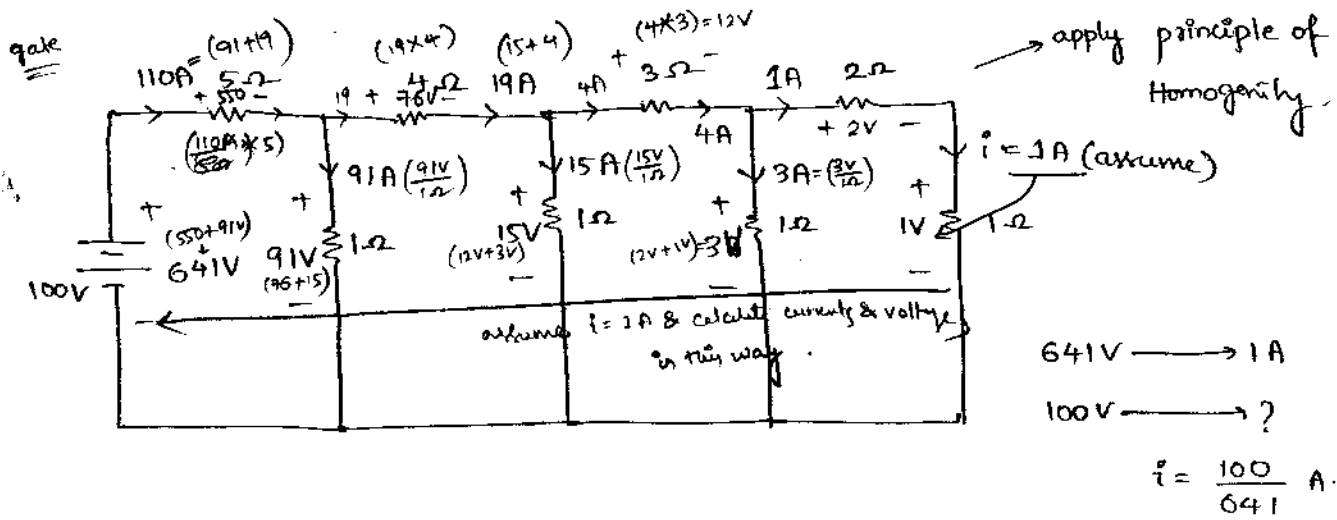 gate
110A = (91+19)
5Ω
+ 550 -
(110A * 5)
(19×4)
4Ω
19 + 76V -
(15+4)
19A
4A
(4*3) = 12V
+ 3Ω -
4A
1A
2Ω
+ 2V -
→ apply painciple of
Homogenity.
i = 1A (assume)
91A (91V/1Ω)
15A (15V/1Ω)
3A = (3V/1Ω)
+
1V
1Ω
-
+
(550+91V)
641V
100V
-
+
91V
1Ω
(76+15)
-
+
15V
1Ω
(12V+3V)
-
+
1Ω
(2V+1V) = 3V
-
assume i = 1A & calculte currents & voltage
in this way.
641V → 1A
100V → ?
i = 100/641 A.